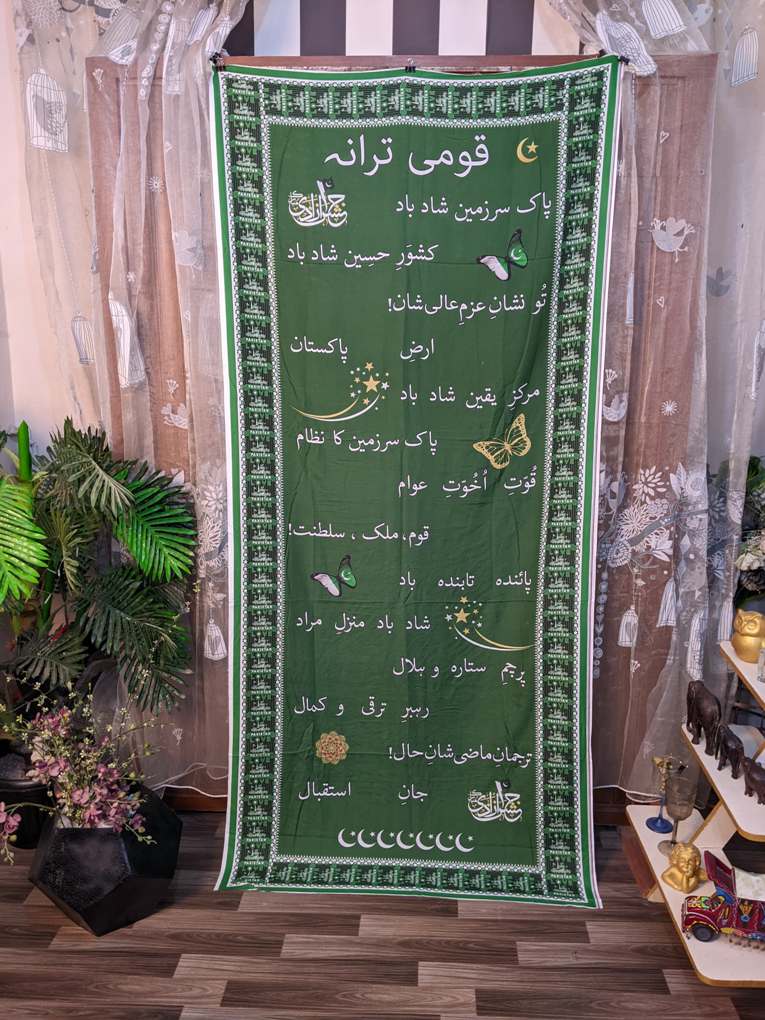 قومی ترانہ
پاک سرزمین شاد باد
جشن آزادی
کشوَرِ حسِین شاد باد
تُو نشانِ عزمِ عالی شان!
ارضِ پاکستان
مرکزِ یقین شاد باد
پاک سرزمین کا نظام
قُوّتِ اُخُوّتِ عوام
قوم، ملک ، سلطنت!
پائندہ تابندہ باد
شاد باد منزلِ مراد
پرچمِ ستارہ و ہلال
رہبرِ ترقی و کمال
ترجمانِ ماضی شانِ حال!
جانِ استقبال
جشن آزادی